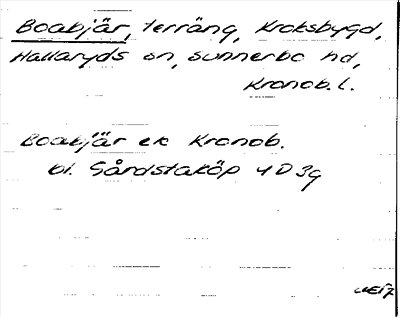 Boabjär, terräng, Kroksbygd,
Hallaryds sn, Sunnerbo hd,
Kronob. l.
Boabjär ek Kronob.
bl. Gårdstaköp 4D 3g